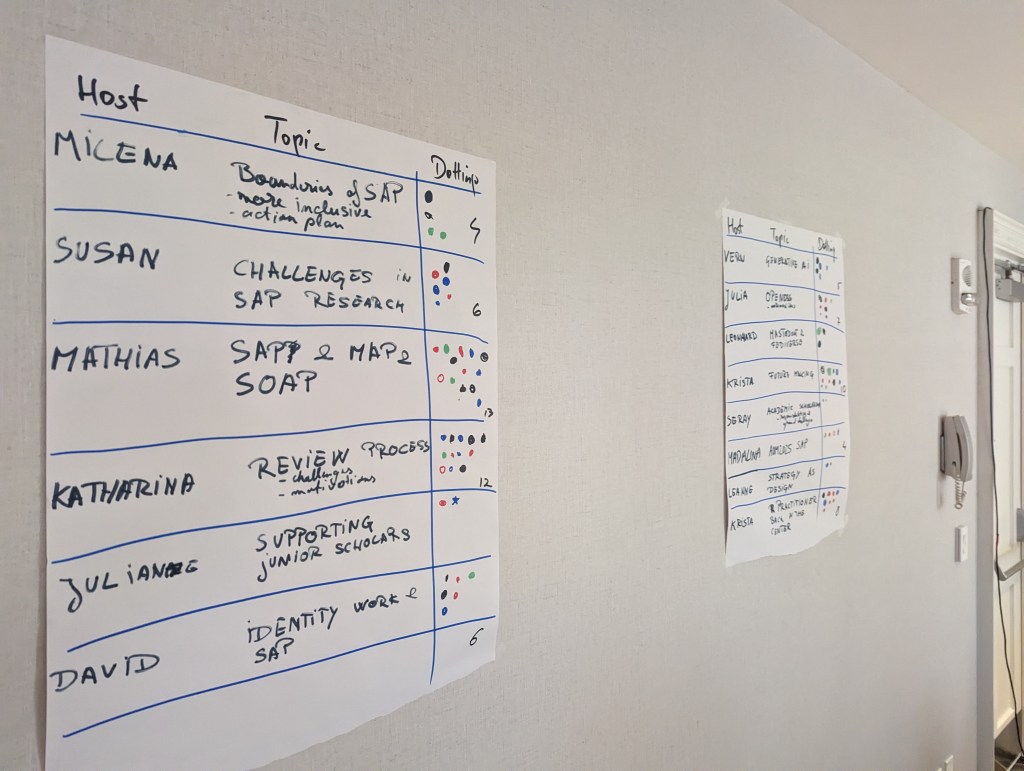 Host Topic Dotting
MILENA
Boundaries of SAP
- more inclusive
- action plan
SUSAN
CHALLENGES in
SAP RESEARCH
6
MATHIAS
SAPP & MAP &
SOAP
13
KATHARINA
REVIEW PROCESS
- challenges
- motivations
12
JULIANNE
SUPPORTING
JUNIOR SCHOLARS
DAVID
IDENTITY WORK &
SAP
6
Host Topic Dotting
VERN GENERATIVE A.I
5
JULIA OPENESS
LEONHARD MASTODON &
FEDIVERSO
KRISTA FUTURE MAKING
10
SERAY ACADEMIC
MADALINA
SAP
4
LEANNE STRATEGY AS
DESIGN
KRISTA PRACTITIONER
BACK IN THE
CENTER
8